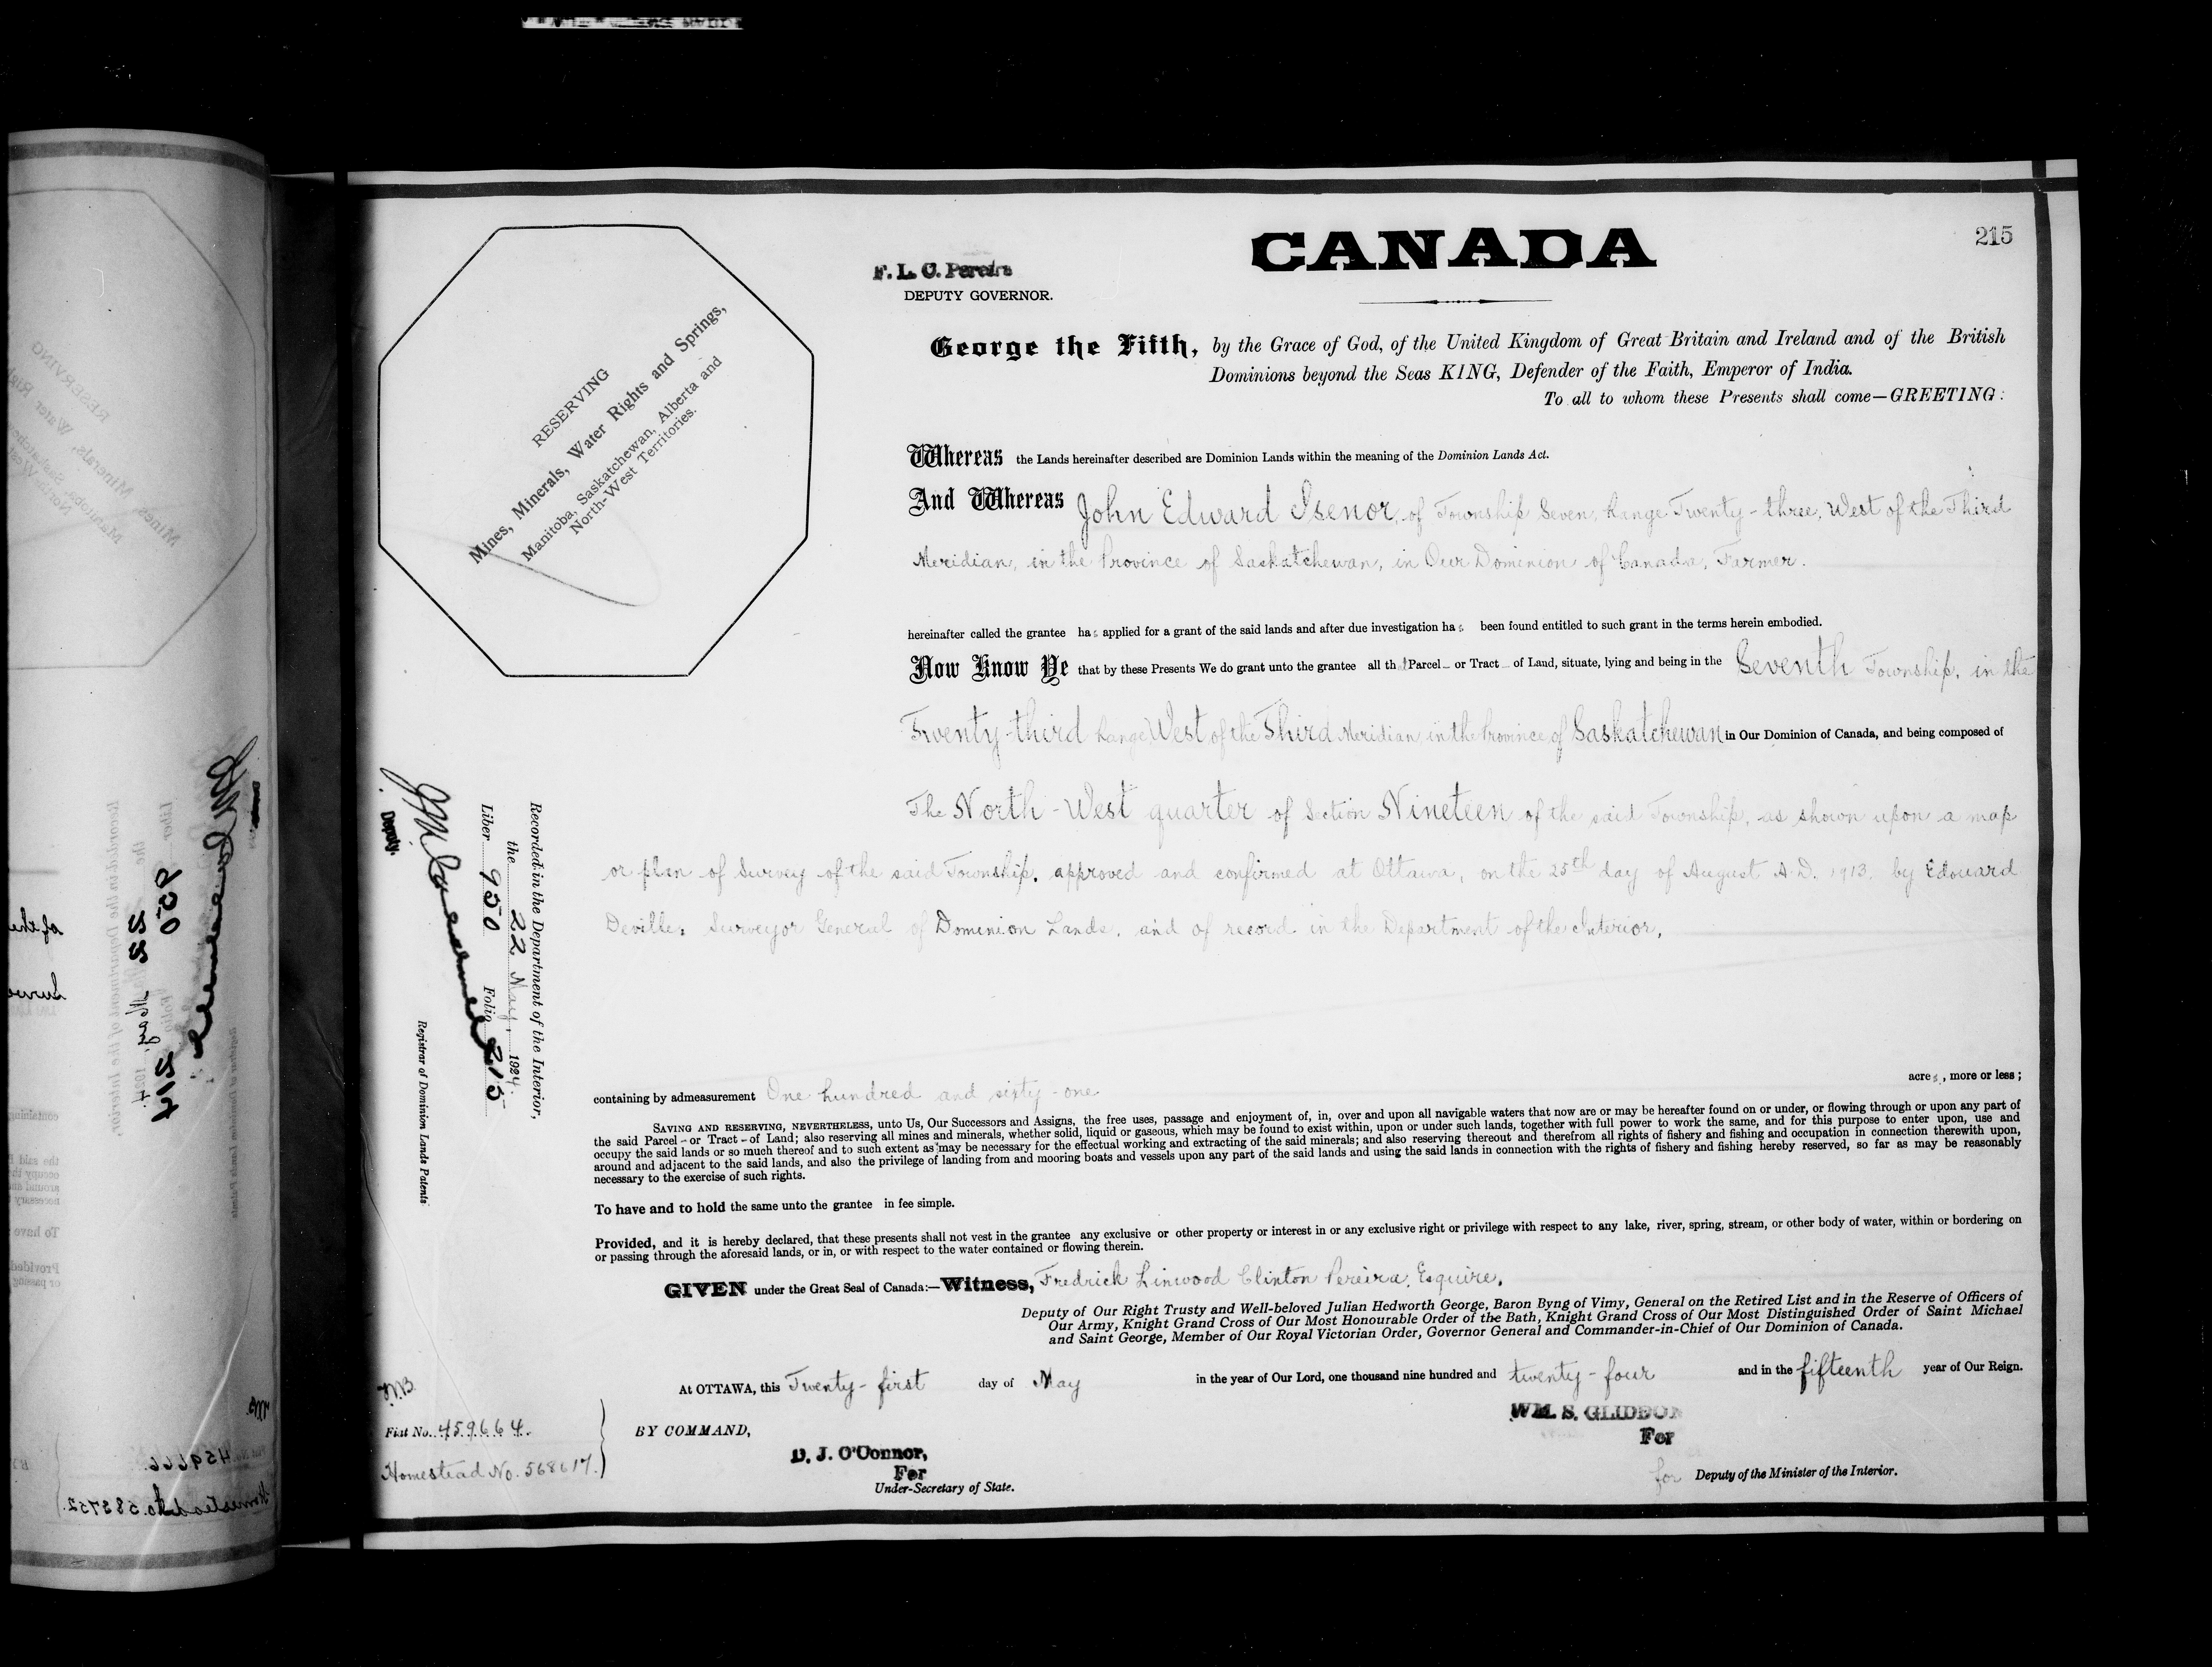 215
CANADA
F. L. C. Pereira
DEPUTY GOVERNOR.
RESERVING
Mines, Minerals, Water Rights and Springs,
Manitoba, Saskatchewan, Alberta and
North-West Territories.
George the Fifth, by the Grace of God, of the United Kingdom of Great Britain and Ireland and of the British
Dominions beyond the Seas KING, Defender of the Faith, Emperor of India.
To all to whom these Presents shall come—GREETING:
Whereas the Lands hereinafter described are Dominion Lands within the meaning of the Dominion Lands Act.
And Whereas John Edward Isenor, of Township Seven, Range Twenty-three, West of the Third
Meridian, in the Province of Saskatchewan, in Our Dominion of Canada, Farmer.
hereinafter called the grantee has applied for a grant of the said lands and after due investigation has been found entitled to such grant in the terms herein embodied.
Now Know Ye that by these Presents We do grant unto the grantee all that Parcel or Tract of Land, situate, lying and being in the Seventh Township, in the
Twenty-third Range West of the Third Meridian, in the Province of Saskatchewan in Our Dominion of Canada, and being composed of
The North-West quarter of Section Nineteen of the said Township, as shown upon a map
or plan of Survey of the said Township, approved and confirmed at Ottawa, on the 25th day of August A.D. 1913, by Edouard
Deville, Surveyor General of Dominion Lands, and of record in the Department of the Interior,
containing by admeasurement One hundred and sixty-one acres, more or less;
SAVING AND RESERVING, NEVERTHELESS, unto Us, Our Successors and Assigns, the free uses, passage and enjoyment of, in, over and upon all navigable waters that now are or may be hereafter found on or under, or flowing through or upon any part of
the said Parcel - or Tract - of Land; also reserving all mines and minerals, whether solid, liquid or gaseous, which may be found to exist within, upon or under such lands, together with full power to work the same, and for this purpose to enter upon, use and
occupy the said lands or so much thereof and to such extent as may be necessary for the effectual working and extracting of the said minerals; and also reserving thereout and therefrom all rights of fishery and fishing and occupation in connection therewith upon,
around and adjacent to the said lands, and also the privilege of landing from and mooring boats and vessels upon any part of the said lands and using the said lands in connection with the rights of fishery and fishing hereby reserved, so far as may be reasonably
necessary to the exercise of such rights.
To have and to hold the same unto the grantee in fee simple.
Provided, and it is hereby declared, that these presents shall not vest in the grantee any exclusive or other property or interest in or any exclusive right or privilege with respect to any lake, river, spring, stream, or other body of water, within or bordering on
or passing through the aforesaid lands, or in, or with respect to the water contained or flowing therein.
GIVEN under the Great Seal of Canada:—Witness, Fredrick Linwood Clinton Pereira, Esquire,
Deputy of Our Right Trusty and Well-beloved Julian Hedworth George, Baron Byng of Vimy, General on the Retired List and in the Reserve of Officers of
Our Army, Knight Grand Cross of Our Most Honourable Order of the Bath, Knight Grand Cross of Our Most Distinguished Order of Saint Michael
and Saint George, Member of Our Royal Victorian Order, Governor General and Commander-in-Chief of Our Dominion of Canada.
At OTTAWA, this Twenty-first day of May in the year of Our Lord, one thousand nine hundred and twenty-four and in the fifteenth year of Our Reign.
BY COMMAND,
D. J. O'Connor,
For
Under-Secretary of State.
WM. S. GLIDDON
For
for Deputy of the Minister of the Interior.
Fiat No. 459664.
Homestead No. 568617.
Recorded in the Department of the Interior,
the 22 May, 1924.
Liber 950 Folio 215
Deputy.
Registrar of Dominion Lands Patents